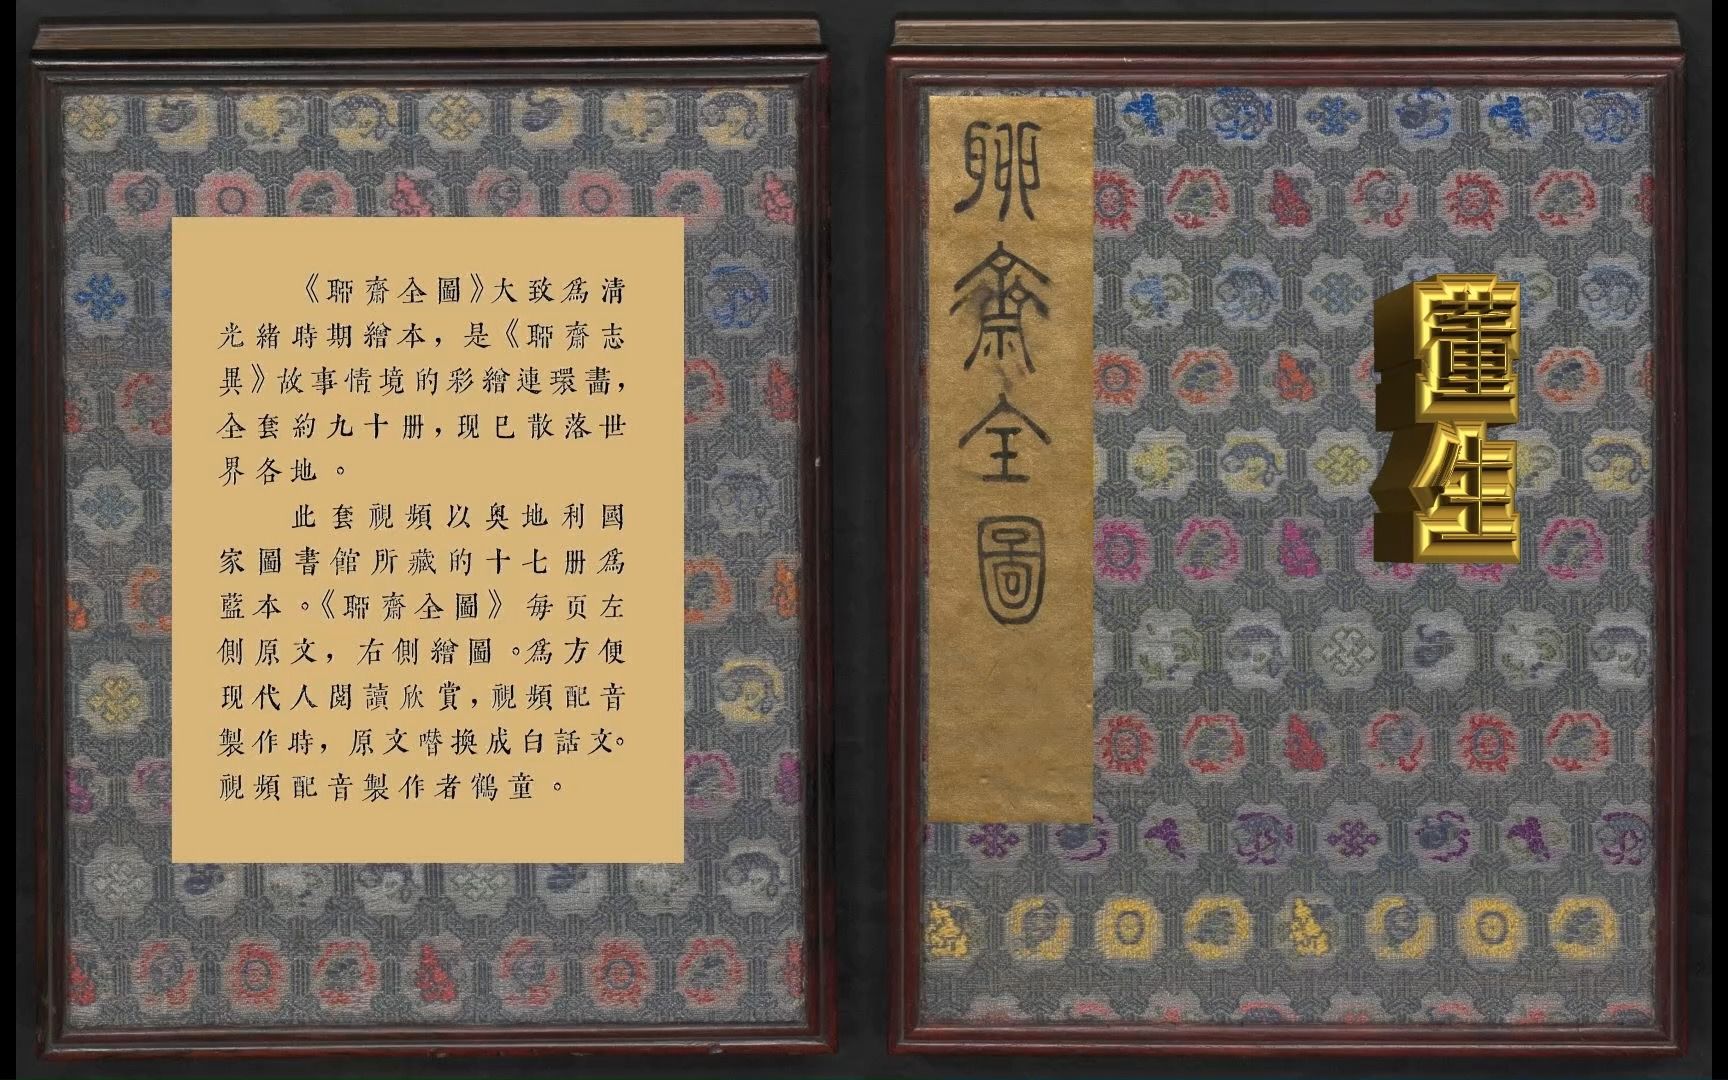 《聊齋全圖》大致爲清
光緒時期繪本，是《聊齋志
異》故事情境的彩繪連環畵，
全套約九十册，现已散落世
界各地。
此套視頻以奥地利國
家圖書館所藏的十七册爲
藍本。《聊齋全圖》每页左
側原文，右側繪圖。爲方便
现代人閲讀欣賞，視頻配音
製作時，原文暜換成白話文。
視頻配音製作者鶴童。
聊齋全圖
董生